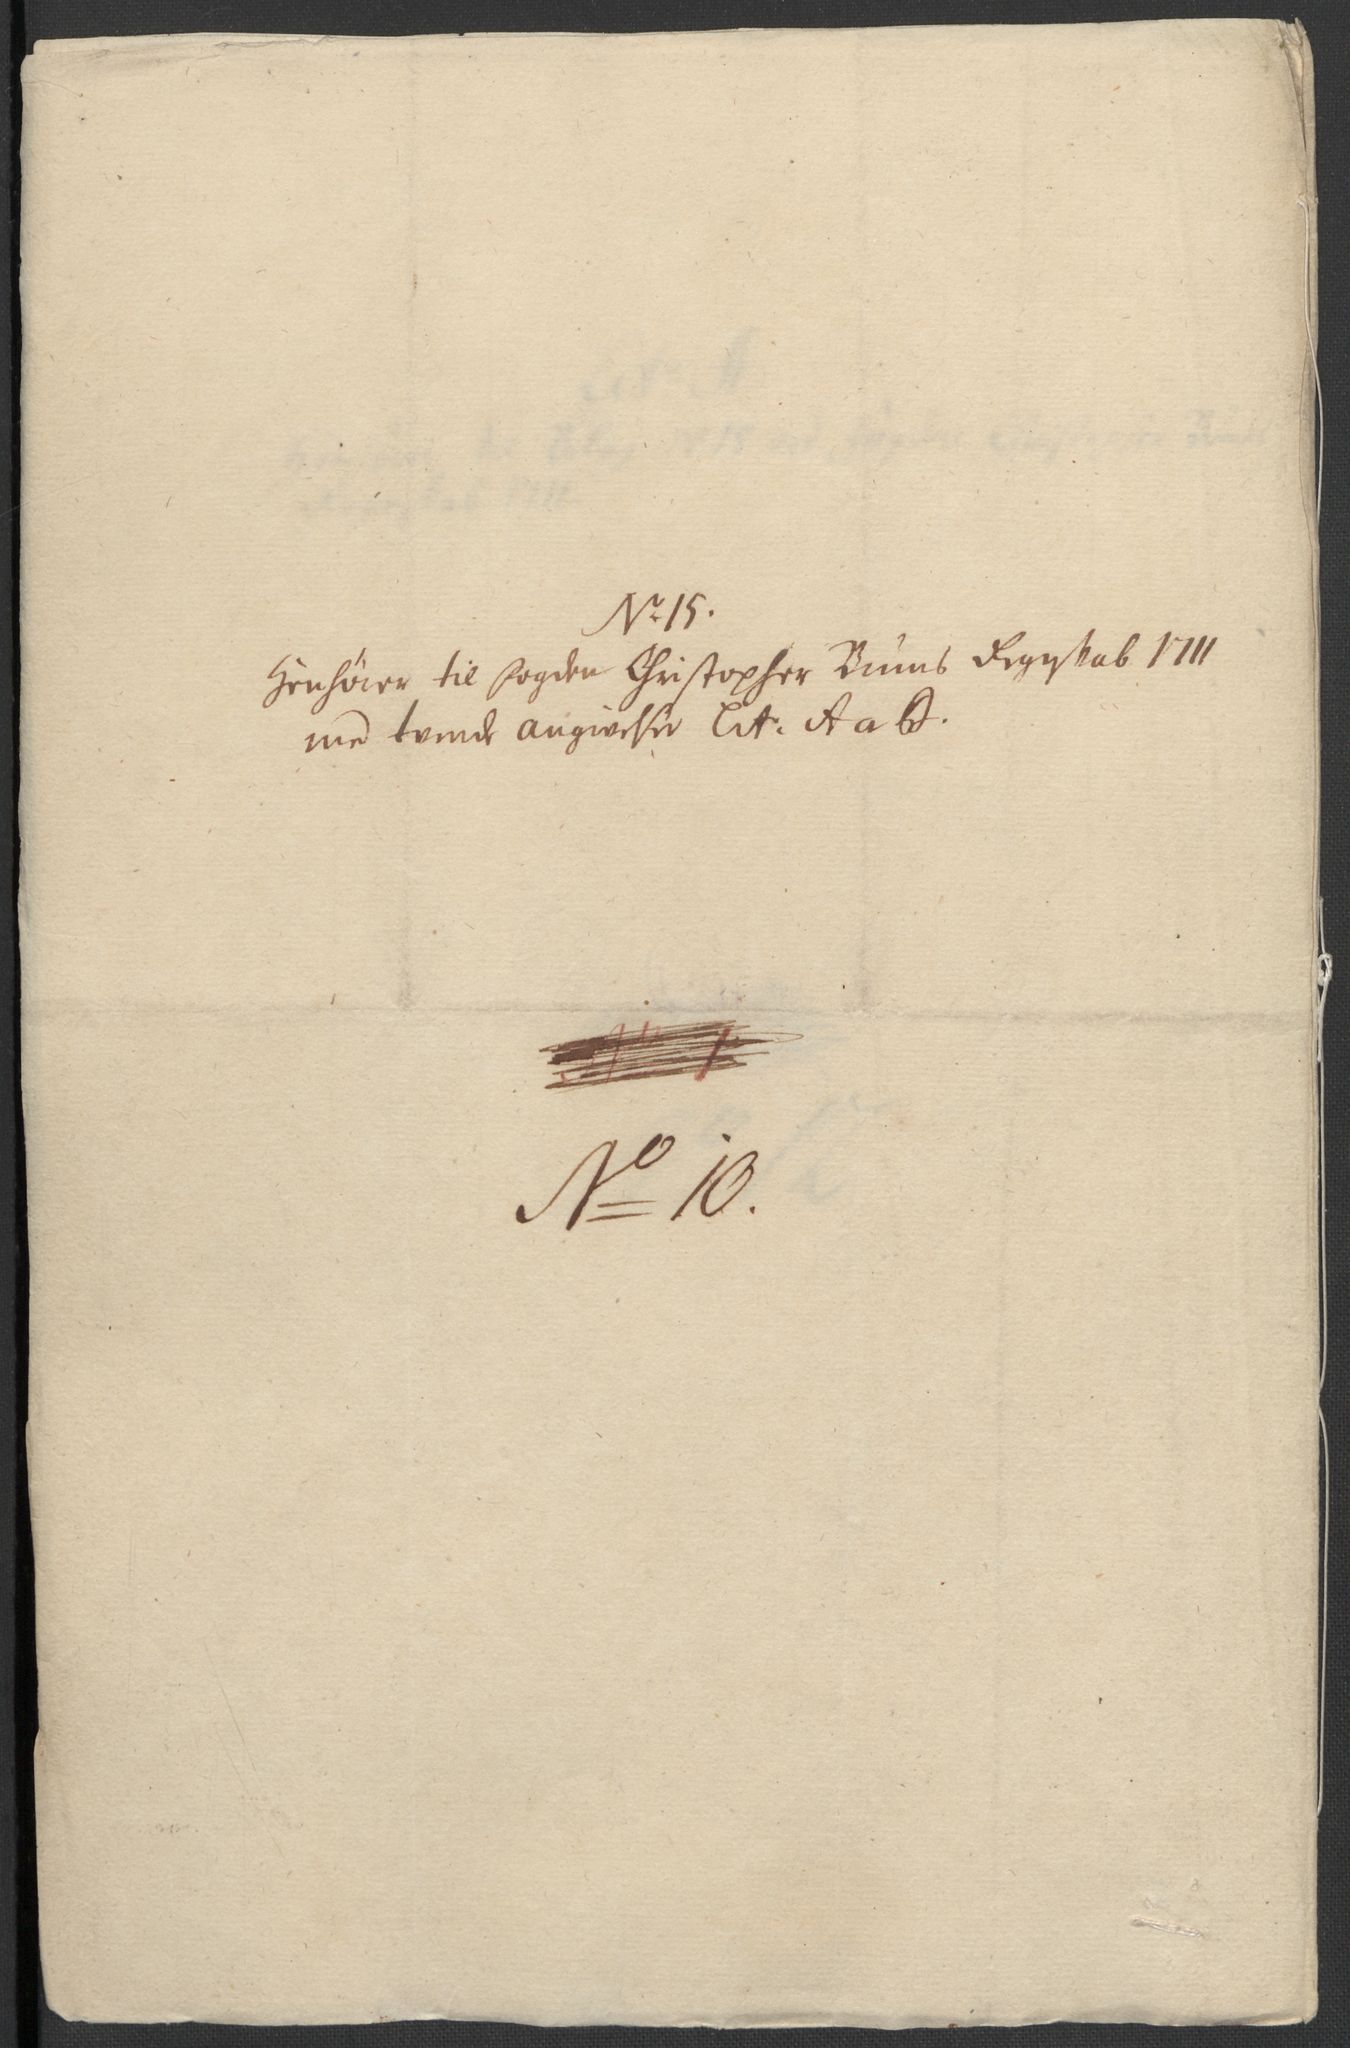 No 15.
Henhörer til fogden Christopher Buuns Regnskab 1711
med tvende angivelser Lit: A a B.
No 10.